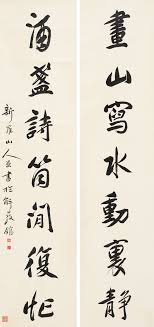 畫山寫水動裏靜
酒盞詩筒閒復忙
新羅山人嵒書於解弢館